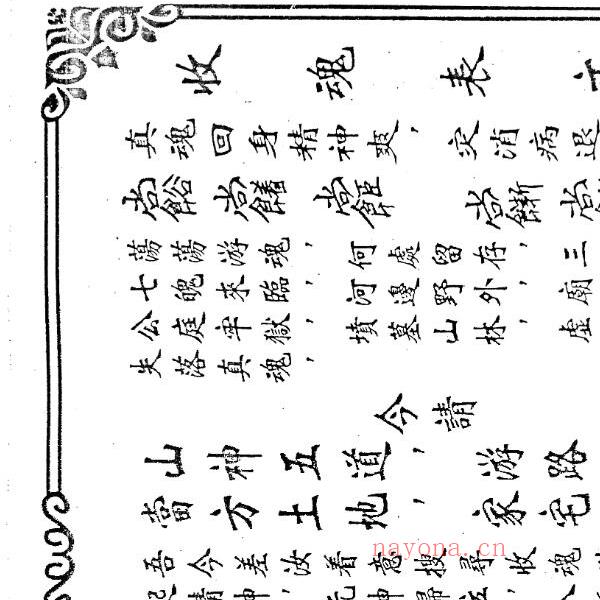 收魂表
真魂回身精神爽，災消病退
蕩蕩游魂，何處留存，三
七魄來臨，河邊野外，廟
公庭牢獄，墳墓山林，虛
失落真魂，
今請
山神五道，游路
當方土地，家宅
吾今差汝着意搜尋收魂
nayona.cn